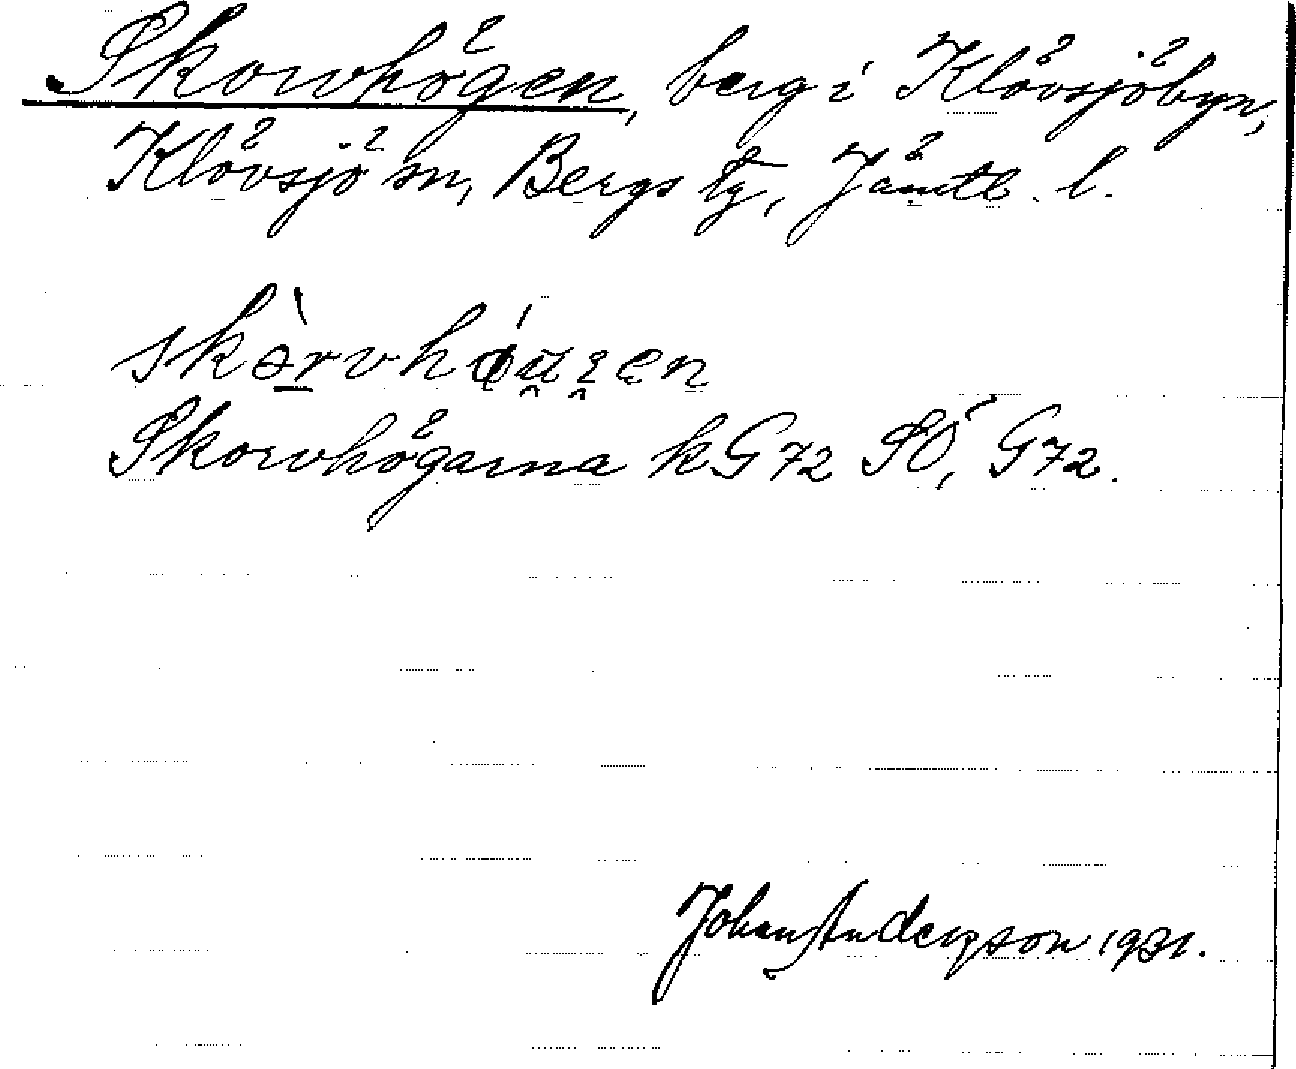 Skorvhögen, berg i Klövsjöbyn,
Klövsjö sn, Bergs tg, Jämtl. l.
Skorvhögarna kG72 SÖ, G72.
Johan Anderson 1931.